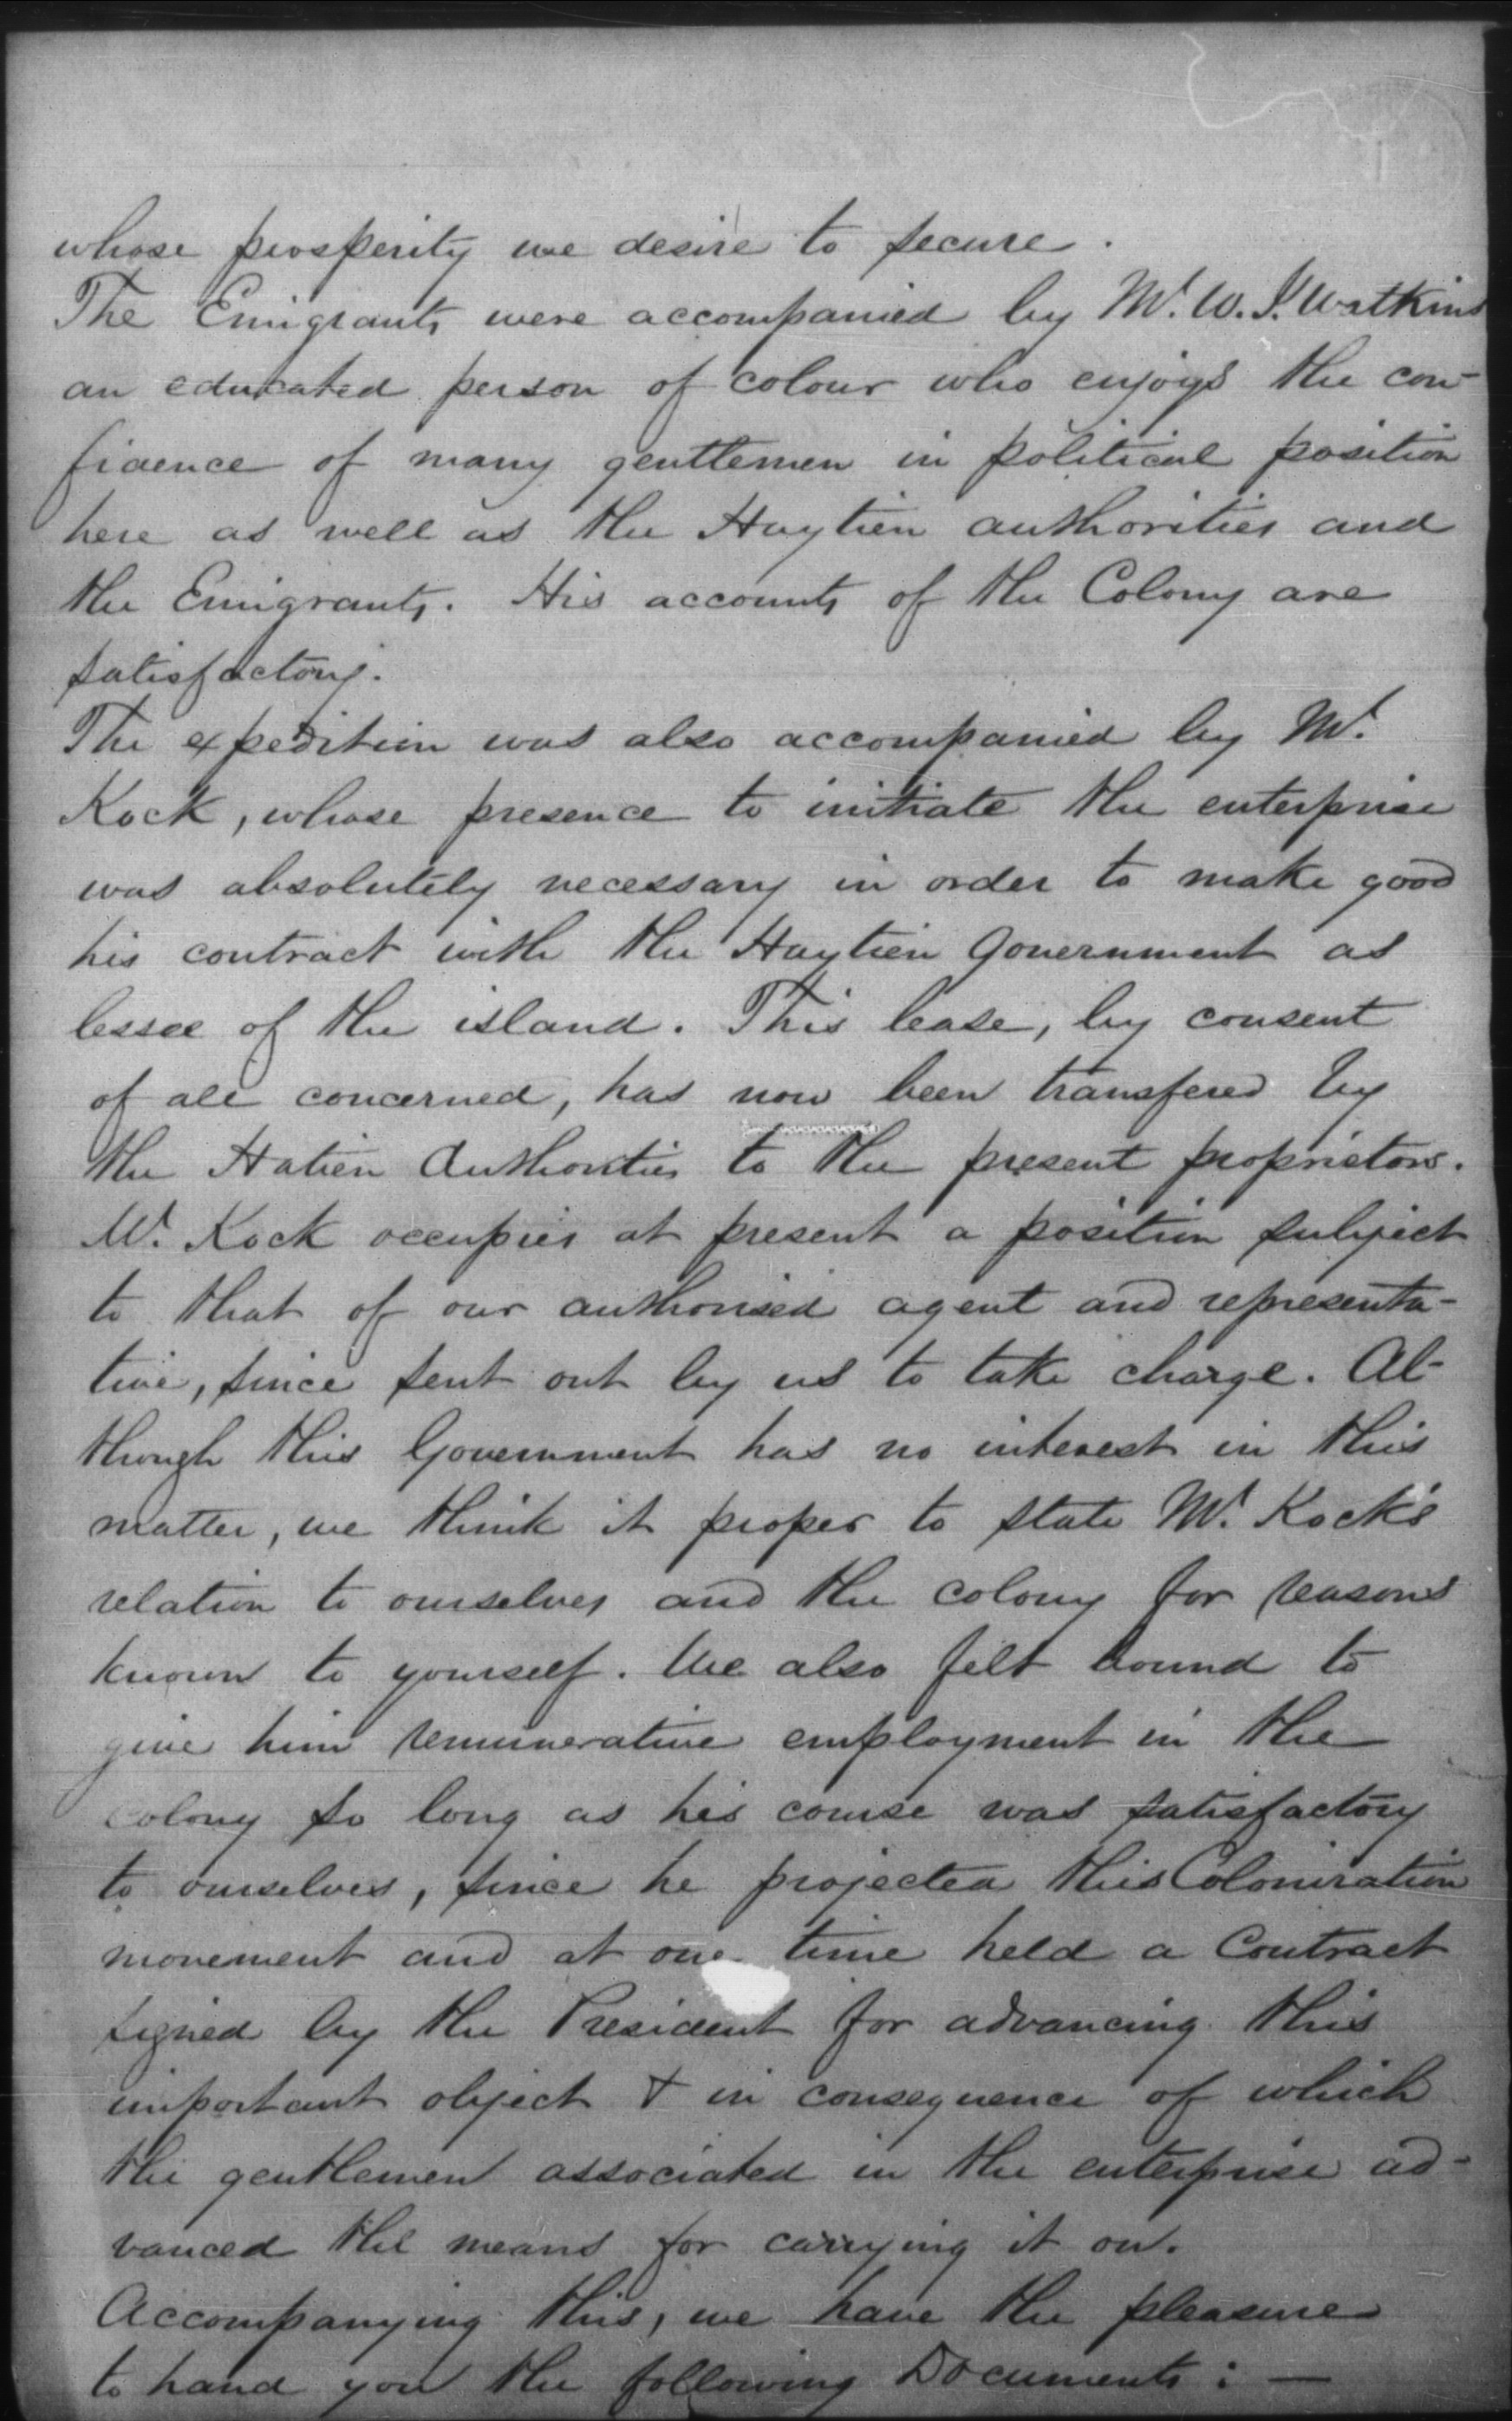 whose prosperity we desire to secure.
The Emigrants were accompanied by Mr. W. J. Watkins
an educated person of colour who enjoys the con-
fidence of many gentlemen in political position
here as well as the Haytien authorities and
the Emigrants. His accounts of the Colony are
satisfactory.
The expedition was also accompanied by Mr.
Kock, whose presence to initiate the enterprise
was absolutely necessary in order to make good
his contract with the Haytien Government as
lessee of the island. This lease, by consent
of all concerned, has now been transfered by
the Hatien Authorities to the present proprietors.
Mr. Kock occupies at present a position subject
to that of our authorised agent and representa-
tive, since sent out by us to take charge. Al-
though this Government has no interest in this
matter, we think it proper to state Mr. Kock's
relation to ourselves and the colony for reasons
known to yourself. We also felt bound to
give him remunerative employment in the
colony so long as his course was satisfactory
to ourselves, since he projected this Colonization
movement and at one time held a Contract
signed by the President for advancing this
important object & in consequence of which
the gentlemen associated in the enterprise ad-
vanced the means for carrying it on.
Accompanying this, we have the pleasure
to hand you the following Documents : —